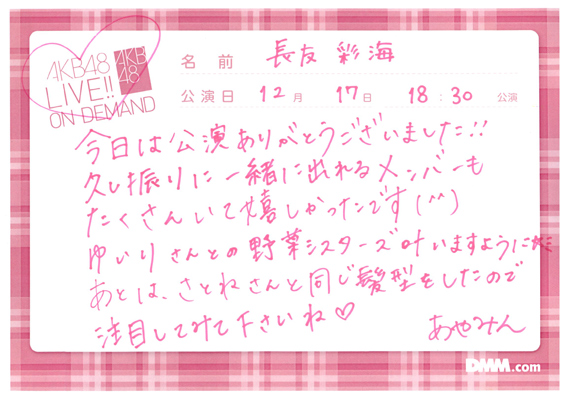 AKB48
LIVE!!
ON DEMAND
AKB
48
名前 長友 彩海
公演日 12月 17日 18:30 公演
今日は公演ありがとうございました!!
久し振りに一緒に出れるメンバーも
たくさんいて嬉しかったです(^^)
ゆいりさんとの野菜シスターズ叶いますように
あとは、さとねさんと同じ髪型をしたので
注目してみて下さいね♡
あやみん
DMM.com